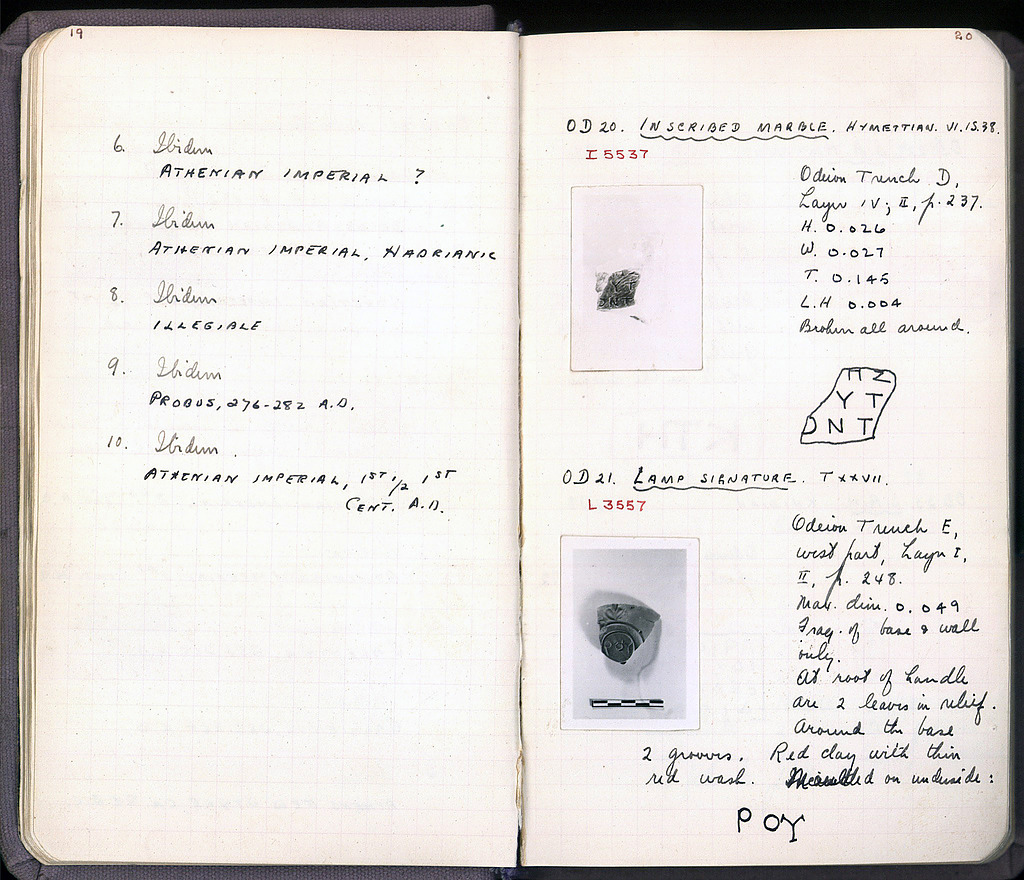 19
6. Ibidem
ATHENIAN IMPERIAL ?
7. Ibidem
ATHENIAN IMPERIAL, HADRIANIC
8. Ibidem
ILLEGIBLE
9. Ibidem
PROBUS, 276-282 A.D.
10. Ibidem.
ATHENIAN IMPERIAL, 1ST 1/2 1ST
CENT. A.D.
20
OD 20. INSCRIBED MARBLE. HYMETTIAN. VI.15.38.
I 5537
Odeion Trench D,
Layer IV; II, p. 237.
H. 0.026
W. 0.027
T. 0.145
L.H 0.004
Broken all around.
YT
ONT
Y T
N T
OD 21. LAMP SIGNATURE. T XXVII.
L 3557
Odeion Trench E,
west part, Layer I,
II, p. 248.
Max. dim. 0.049
Frag. of base & wall
only.
At root of handle
are 2 leaves in relief.
Around the base
2 grooves. Red clay with thin
red wash. on underside:
POY
POY